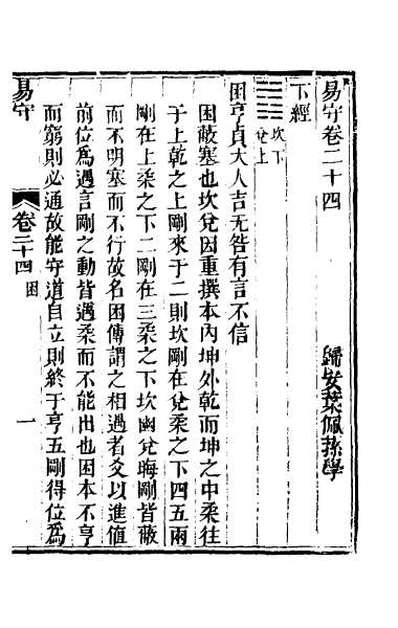 易守卷二十四
歸安葉佩蓀學
下經
坎下
兌上
困亨貞大人吉无咎有言不信
困蔽塞也坎兌因重撰本內坤外乾而坤之中柔往
于上乾之上剛來于二則坎剛在兌柔之下四五兩
剛在上柔之下二剛在三柔之下坎幽兌晦剛皆蔽
而不明塞而不行故名困傳謂之相遇者爻以進值
前位爲遇言剛之動皆遇柔而不能出也困本不亨
而窮則必通故能守道自立則終于亨五剛得位爲
易守
卷二十四
困
一